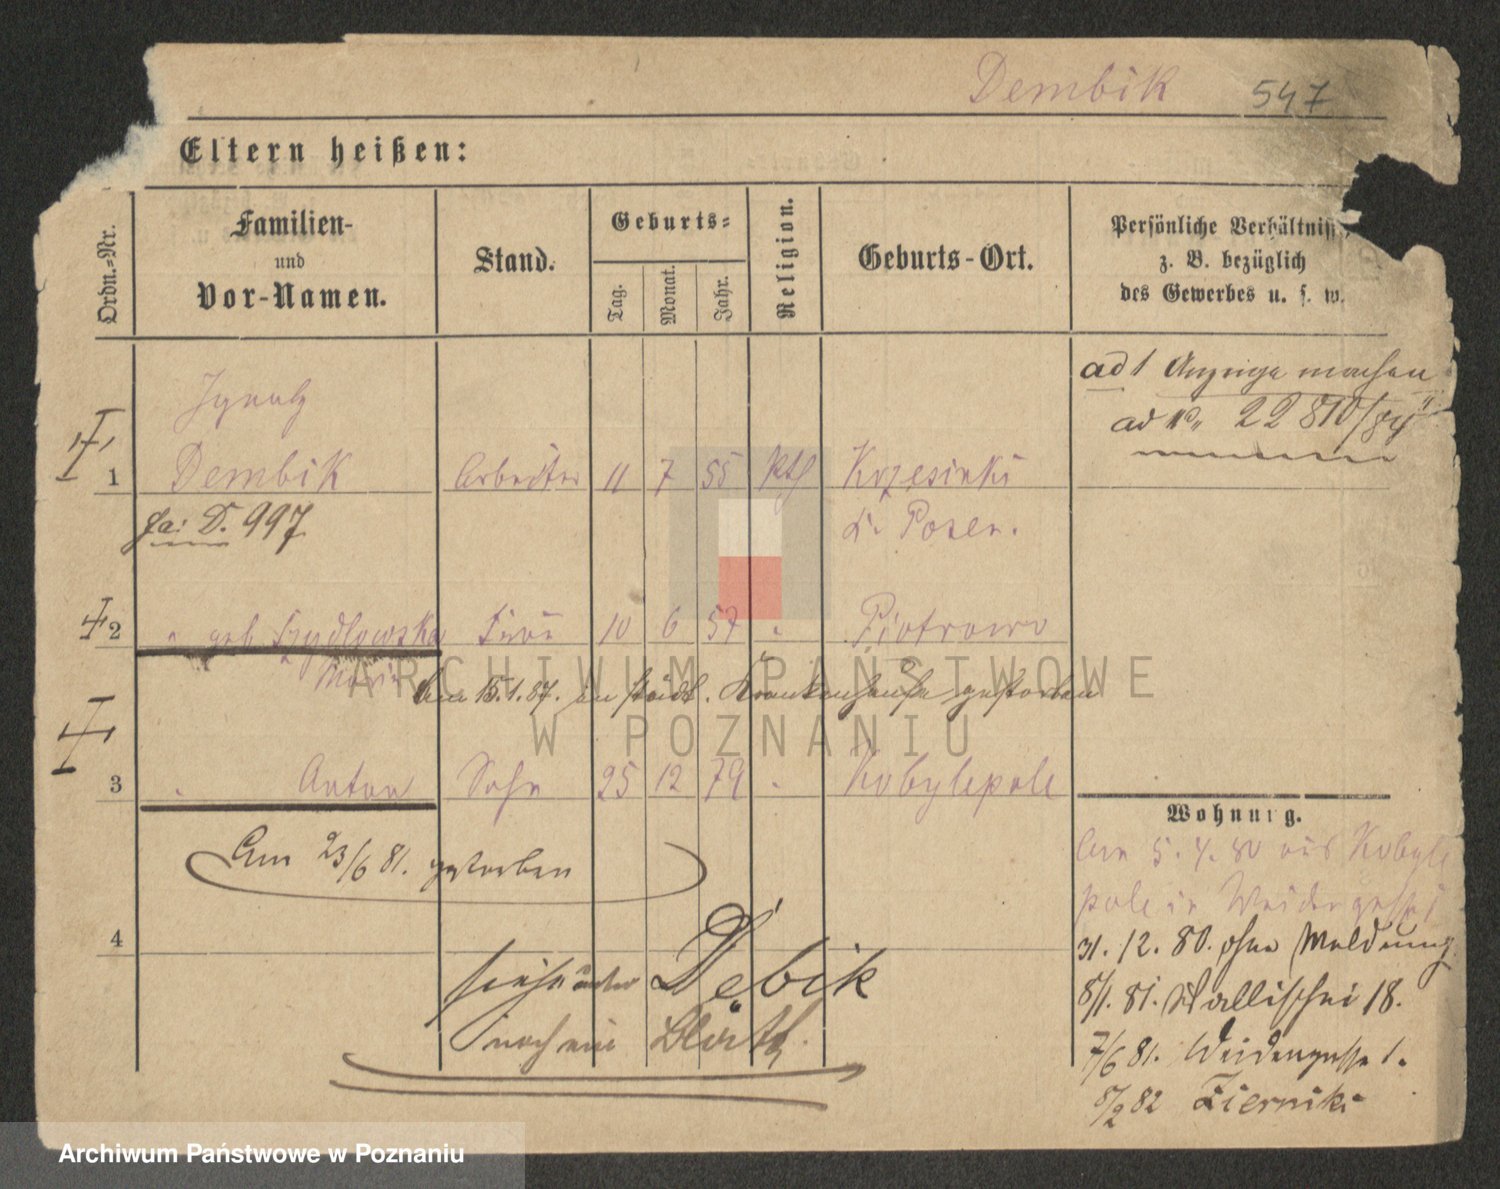 Dembik 547
Eltern heißen:
Ordn.-Nr.
Familien-
und
Vor-Namen.
Stand.
Geburts-
Tag.
Monat.
Jahr.
Religion.
Geburts-Ort.
Persönliche Verhältniss
z. B. bezüglich
des Gewerbes u. s. w.
ad 1 Anzeige machen
ad 22 810/84
Ignatz
1 Dembik Arbeiter 11 7 55 kth Krzesinki
D. 997 Kr. Posen.
2 " geb. Szydlowska Frau 10 6 57 " Piotrowo
Maria Am 15.1.87. im städt. Krankenhause gestorben
3 " Anton Sohn 25 12 79 " Kobylepole
Am 23/6 81. gestorben
4
siehe unter Dębik
noch ein Blatt.
Wohnung.
Am 5. 4. 80 aus Kobyle
pole in Weidengasse 1
31. 12. 80. ohne Meldung
8/1. 81. Wallischei 18.
7/6 81. Weidengasse 1.
8/2 82 Zierniki
ARCHIWUM PAŃSTWOWE
W POZNANIU
Archiwum Państwowe w Poznaniu